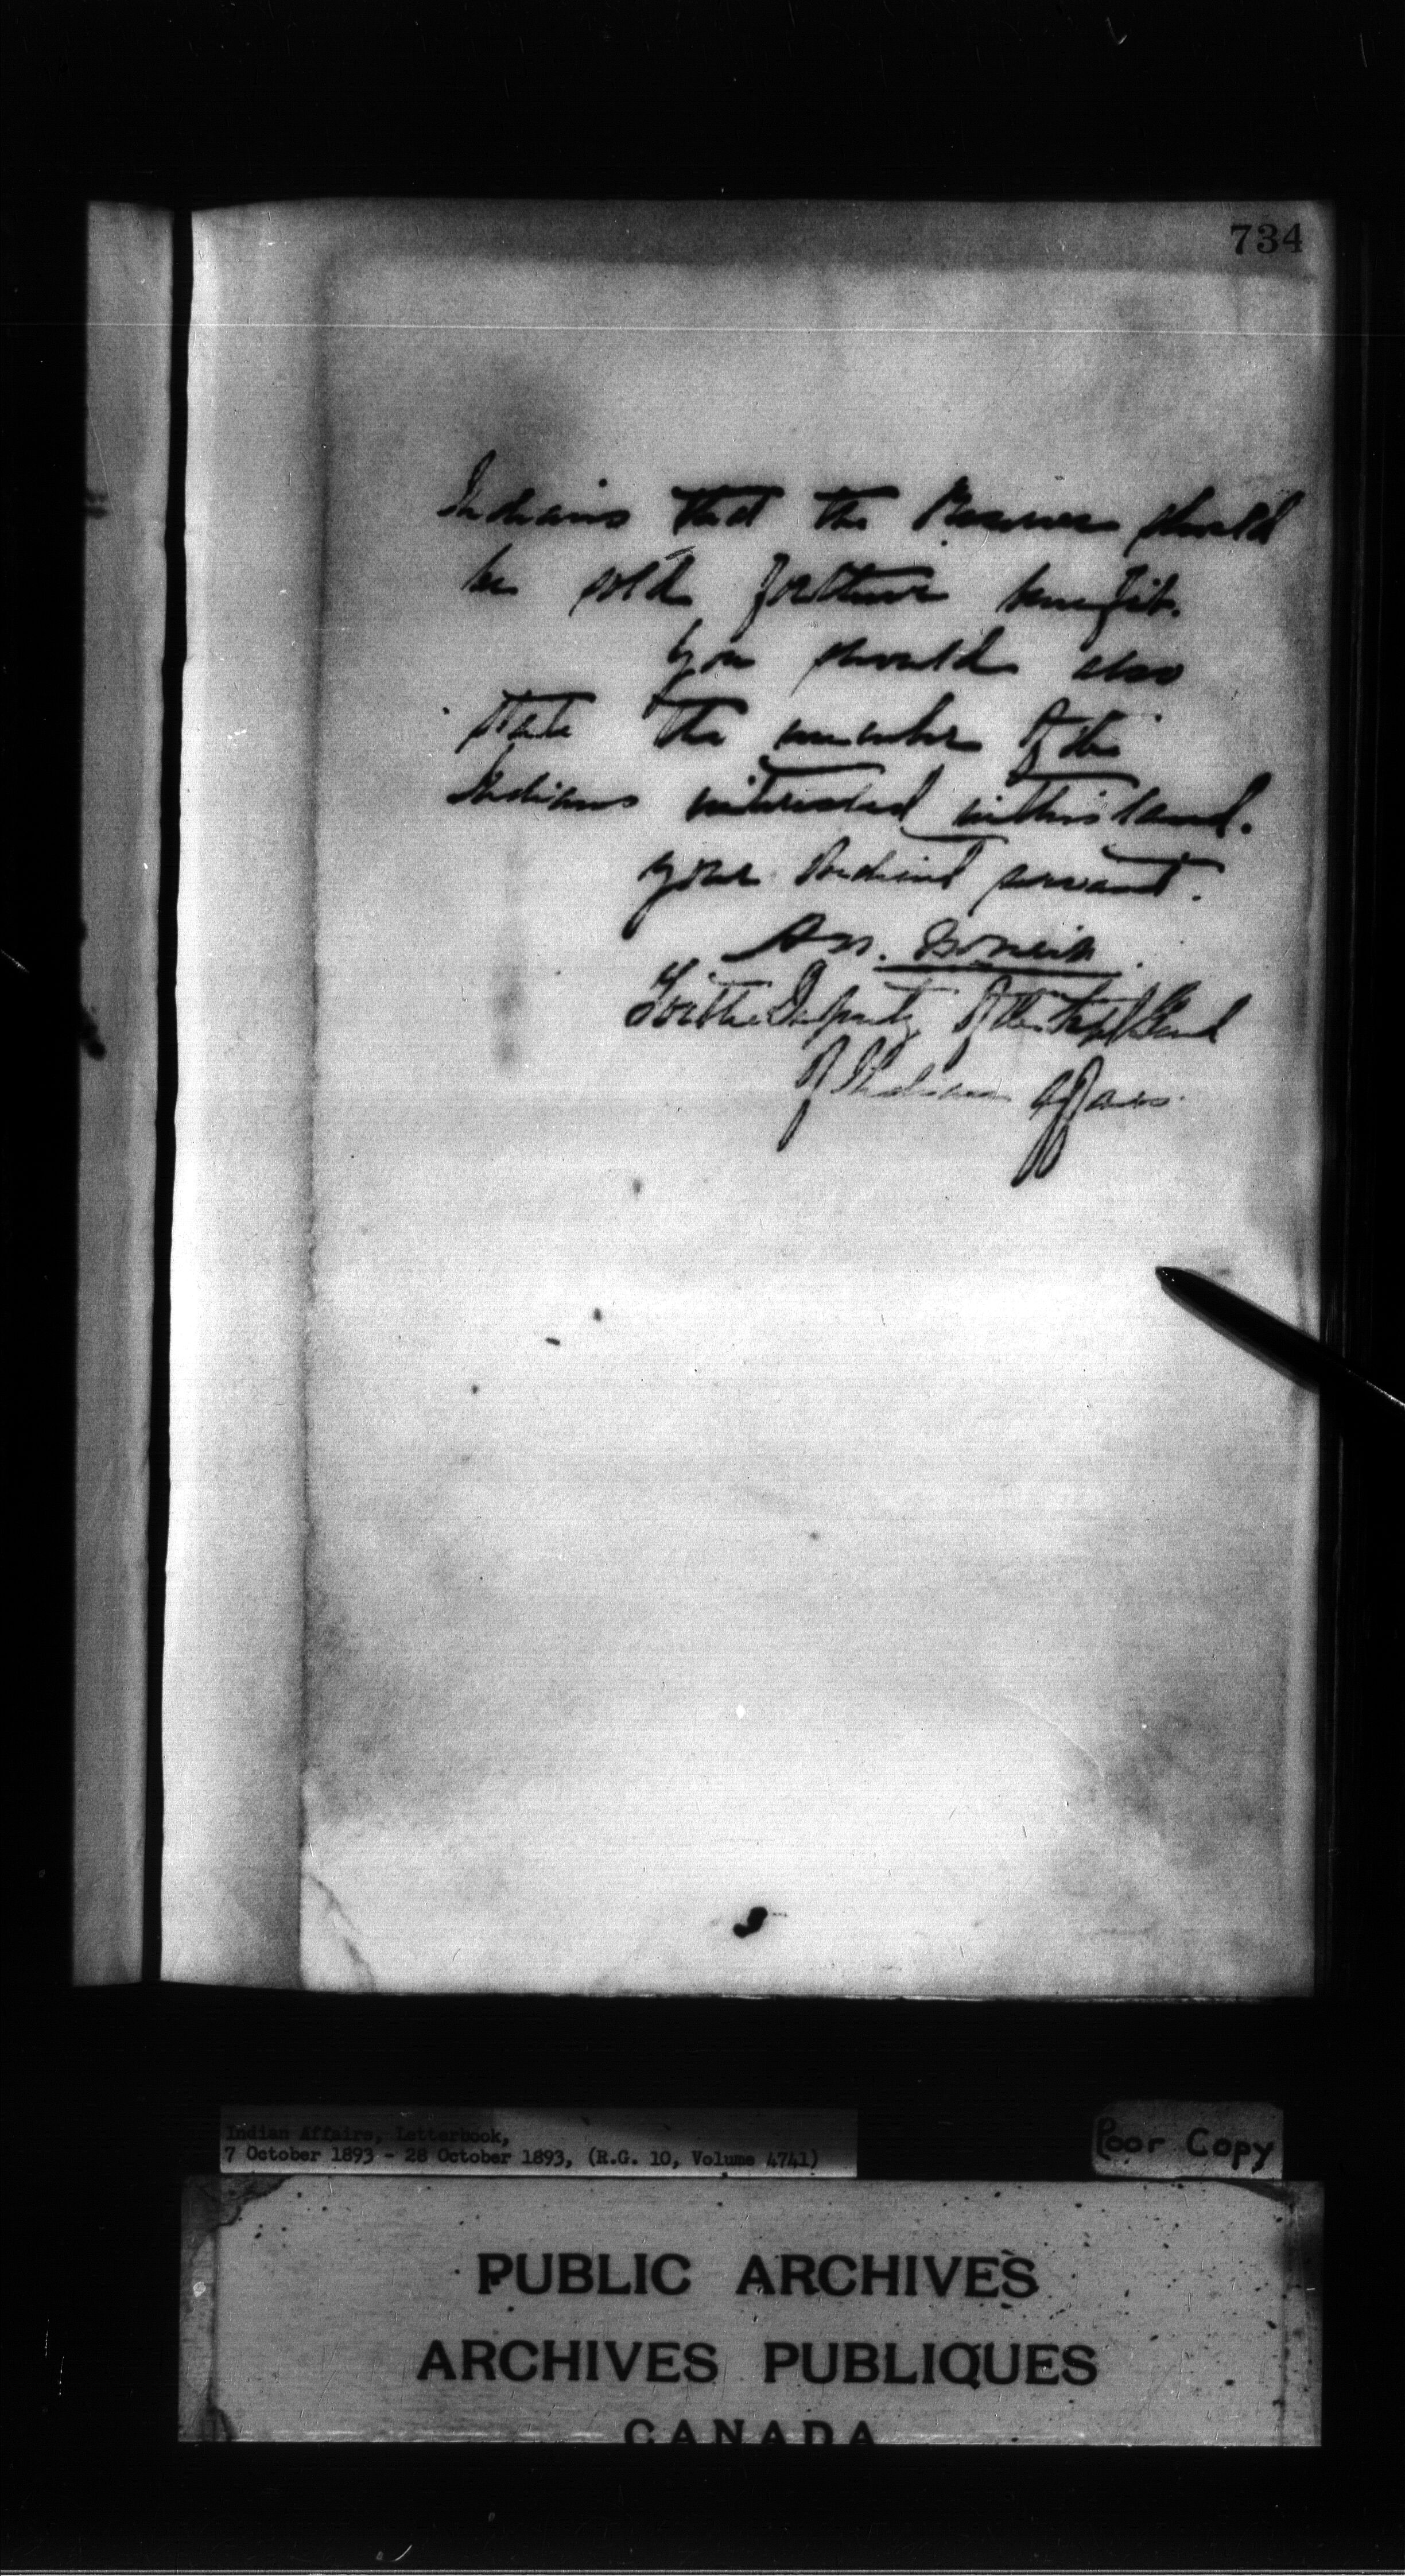 734
Indians that the Reserve should
be sold for their benefit.
You should also
state the number of the
Indians interested in this land.
Your obedient servant.
For the Deputy of the Supt Genl
of Indian Affairs.
Indian Affairs, Letterbook,
7 October 1893 - 28 October 1893, (R.G. 10, Volume 4741)
Poor Copy
PUBLIC ARCHIVES
ARCHIVES PUBLIQUES
CANADA